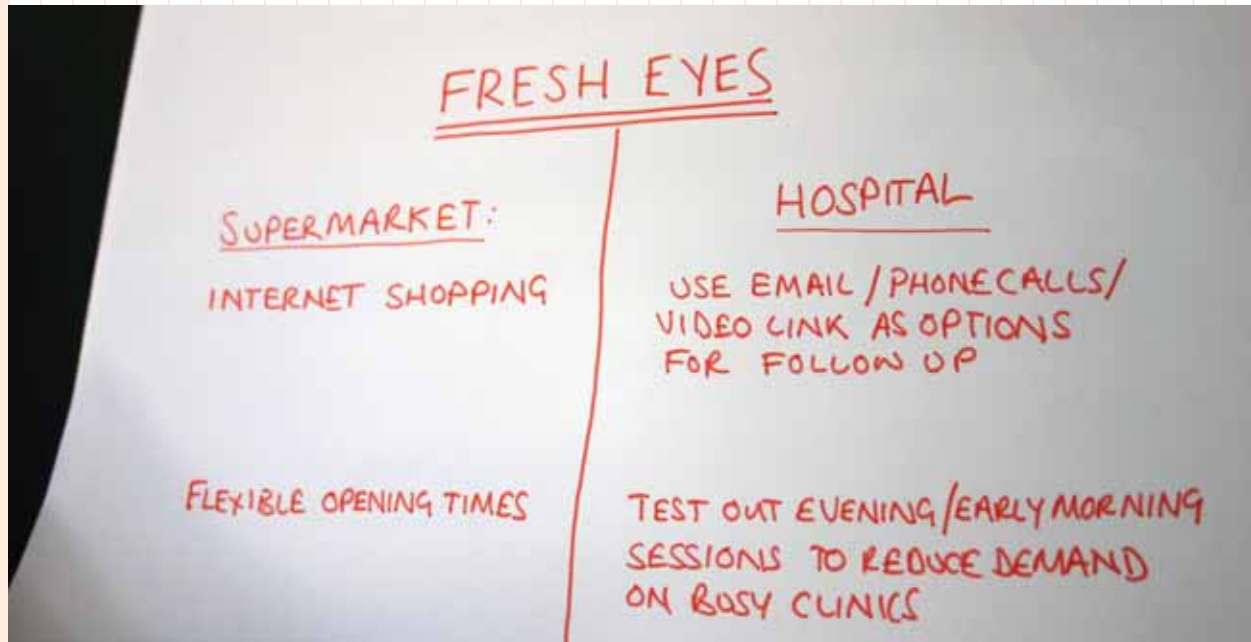 FRESH EYES
SUPERMARKET:
INTERNET SHOPPING
FLEXIBLE OPENING TIMES
HOSPITAL
USE EMAIL / PHONECALLS /
VIDEO LINK AS OPTIONS
FOR FOLLOW UP
TEST OUT EVENING/EARLY MORNING
SESSIONS TO REDUCE DEMAND
ON BUSY CLINICS